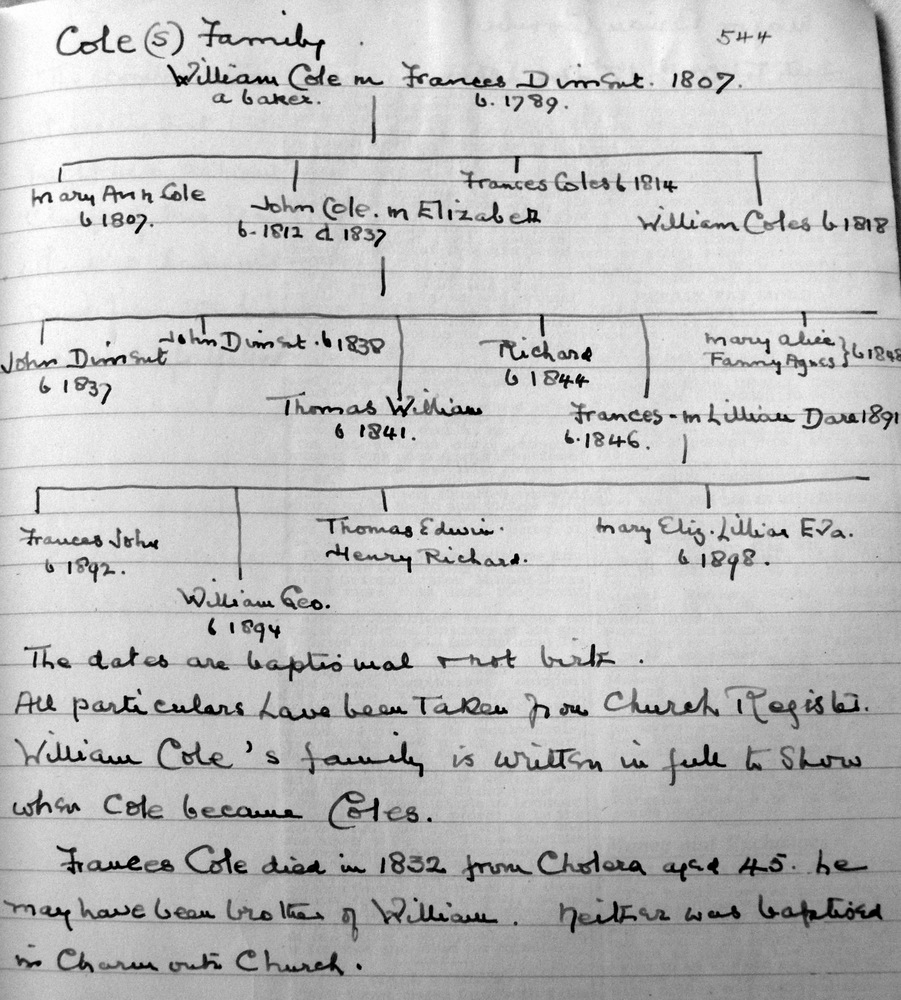 Cole(s) Family. 544
William Cole m Frances Diment. 1807.
a baker. b. 1789.
Mary Ann Cole
b 1807.
John Cole. m Elizabeth
b. 1812 d 1837
Frances Coles b 1814
William Coles b 1818
John Diment
b 1837
John Diment. b 1838
Thomas William
b 1841.
Richard
b 1844
Frances - m Lillian Dare 1891
b. 1846.
Mary Alice }
Fanny Agnes } b 1848
Frances John
b 1892.
William Geo.
b 1894
Thomas Edwin.
Henry Richard.
Mary Eliz. Lillian Eva.
b 1898.
The dates are baptismal & not birth.
All particulars have been Taken from Church Register.
William Cole's family is written in full to show
when Cole became Coles.
Frances Cole died in 1832 from Cholera aged 45. he
may have been brother of William. Neither was baptised
in Charmouth Church.